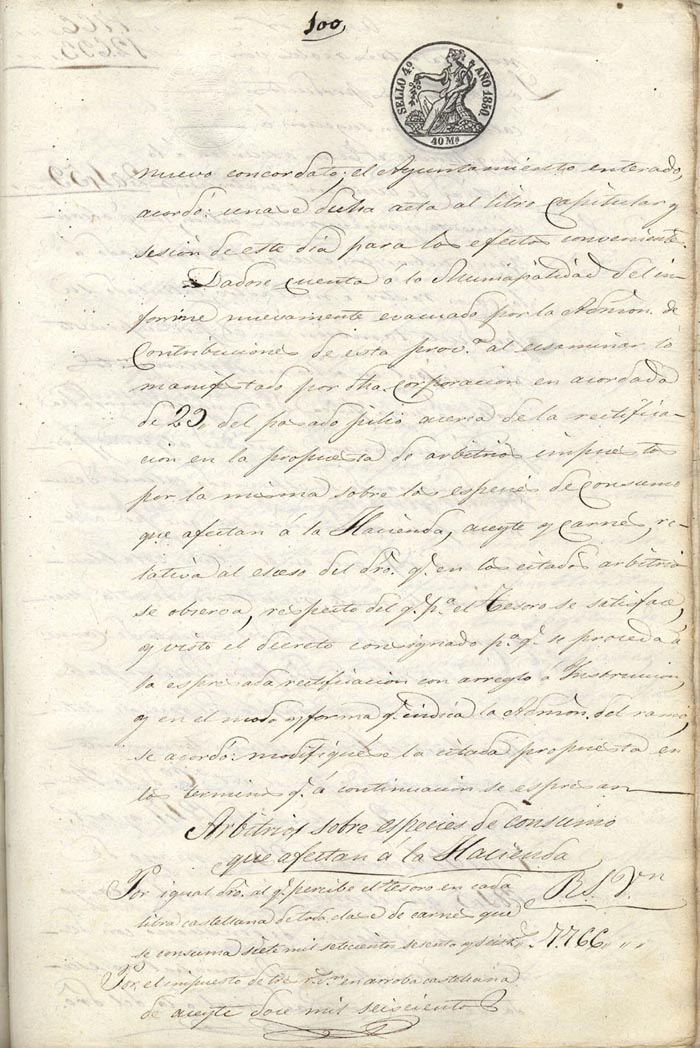 100,
SELLO 4º AÑO 1850.
40 Ms
nuevo concordato; el Ayuntamiento enterado,
acordó: unase dicha acta al libro Capitular y
sesion de este dia para los efectos convenientes
Dadose cuenta á la Municipalidad del in-
forme nuevamente evacuado por la Admon. de
Contribuciones de esta prov.ª al ecsaminar lo
manifestado por dha. corporacion en acordada
de 23, del pasado julio acerca de la rectifica-
cion en la propuesta de arbitrios impuestos
por la misma sobre las especies de Consumo
que afectan á la Hacienda, aceyte y Carnes, re-
lativa al esceso del dro. q.e en los citados arbitrios
se observa, respecto del q.e p.ª el Tesoro se satisface,
y visto el decreto consignado p.ª q.e se proceda á
la espresada rectificacion con arreglo á Instruccion,
y en el modo y forma q.e indica la Admon. del ramo,
se acordó: modifiquese la citada propuesta en
los terminos q.e á continuacion se espresan
Arbitrios sobre especies de consumo
que afectan á la Hacienda
Rs. Vn
Por igual dro. al q.e percibe el tesoro en cada
libra castellana de toda clase de carnes que
se consuma siete mil setecientos sesenta y seis rs. 7.766 ,, ,,
Por el impuesto de tres rs. vn. en arroba castellana
de aceyte doce mil seiscientos